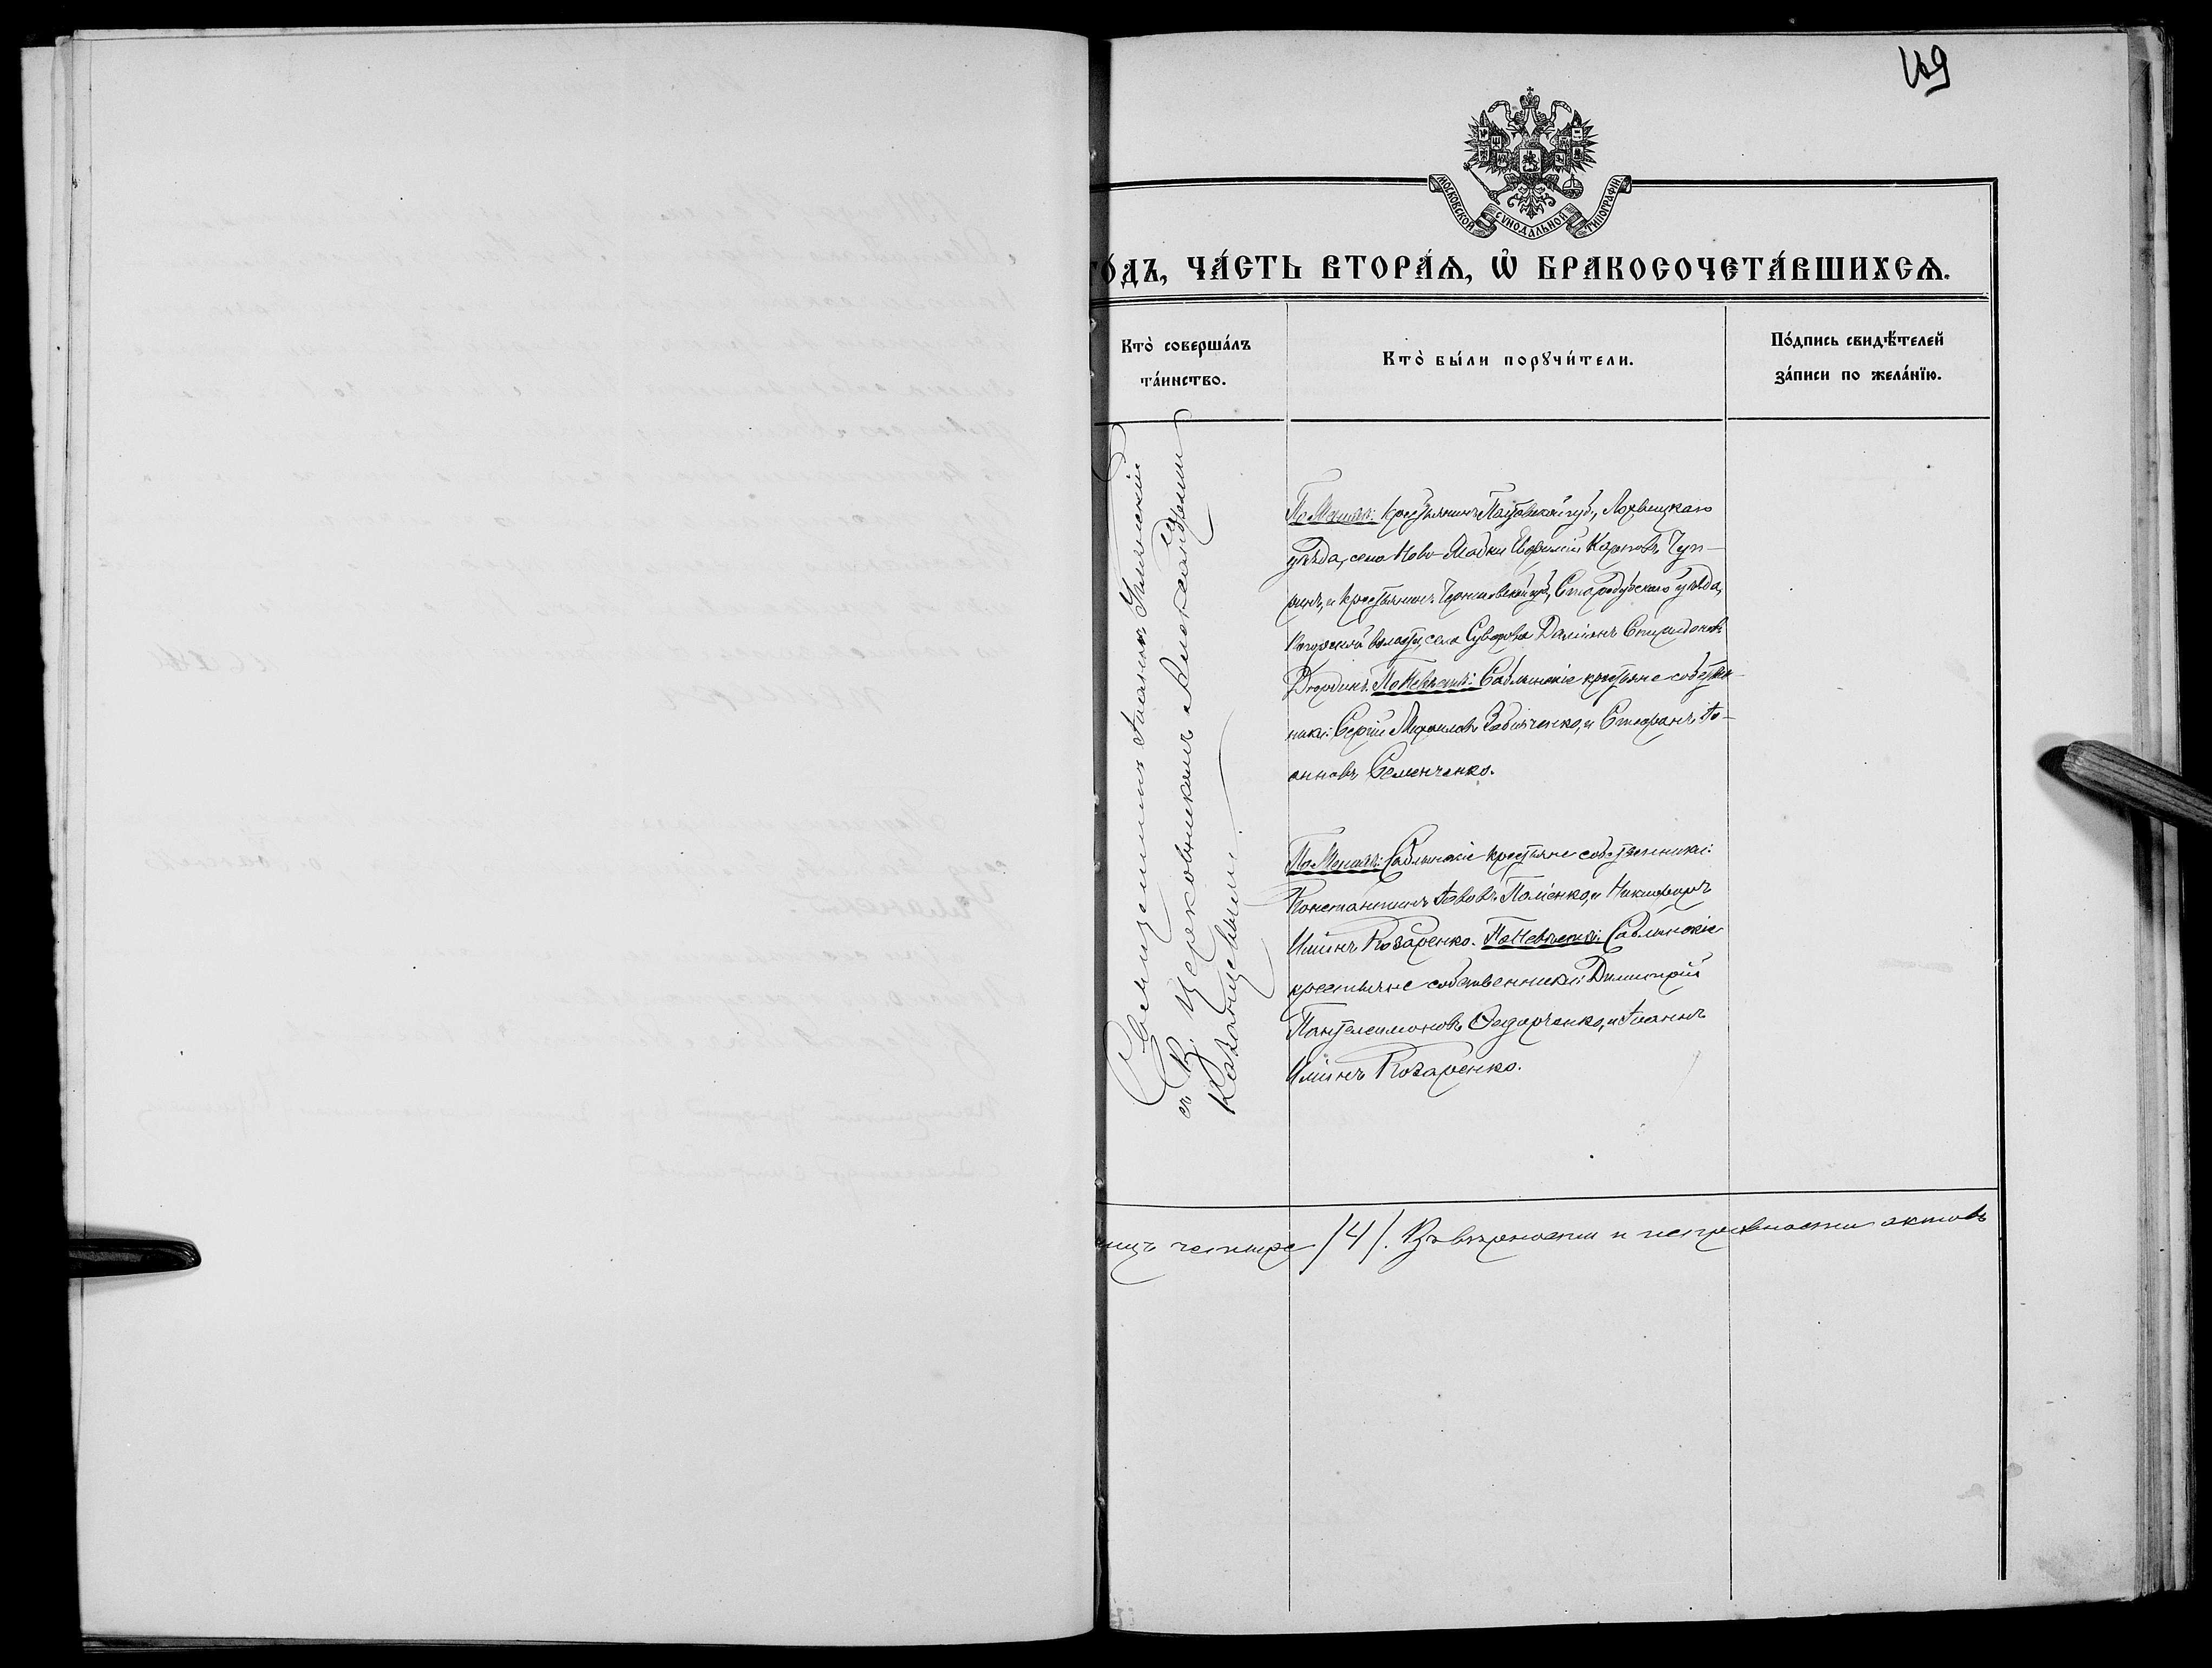 169
МОСКОВСКОЙ СѴНОДАЛЬНОЙ ТИПОГРАФІИ
го́дъ, ча́сть втора́ѧ, ѡ҆ бракосочета́вшихсѧ.
Кто̀ соверша́лъ
та́инство.
Кто̀ бы́ли порꙋчи́тели.
По́дпись свидѣ́телей
за́писи по жела́нїю.
Священникъ Іоаннъ
съ И. д. церковникомъ Александромъ
Казанцевымъ.
По Женихѣ: крестьянинъ Полтавской губ., Лохвицкаго
уѣзда, села Ново- Евфимій Карповъ Чуп-
рин, и крестьянинъ Черниговской губ., Стародубскаго уѣзда,
волости, села Суворова Даміанъ Спиридоновъ
По Невѣстѣ: Саблинскіе крестьяне собствен-
ники: Сергій Михаиловъ и Стефанъ Іо-
анновъ Семенченко.
По Женихѣ: Саблинскіе крестьяне собственники:
Константинъ Іововъ и Никифоръ
Иліинъ Козаренко. По Невѣстѣ: Саблинскіе
крестьяне собственники: Димитрій
Пантелеимоновъ Федорченко, и Іоаннъ
Иліинъ Козаренко.
четыре /4/. Въ вѣрности и исправности актовъ